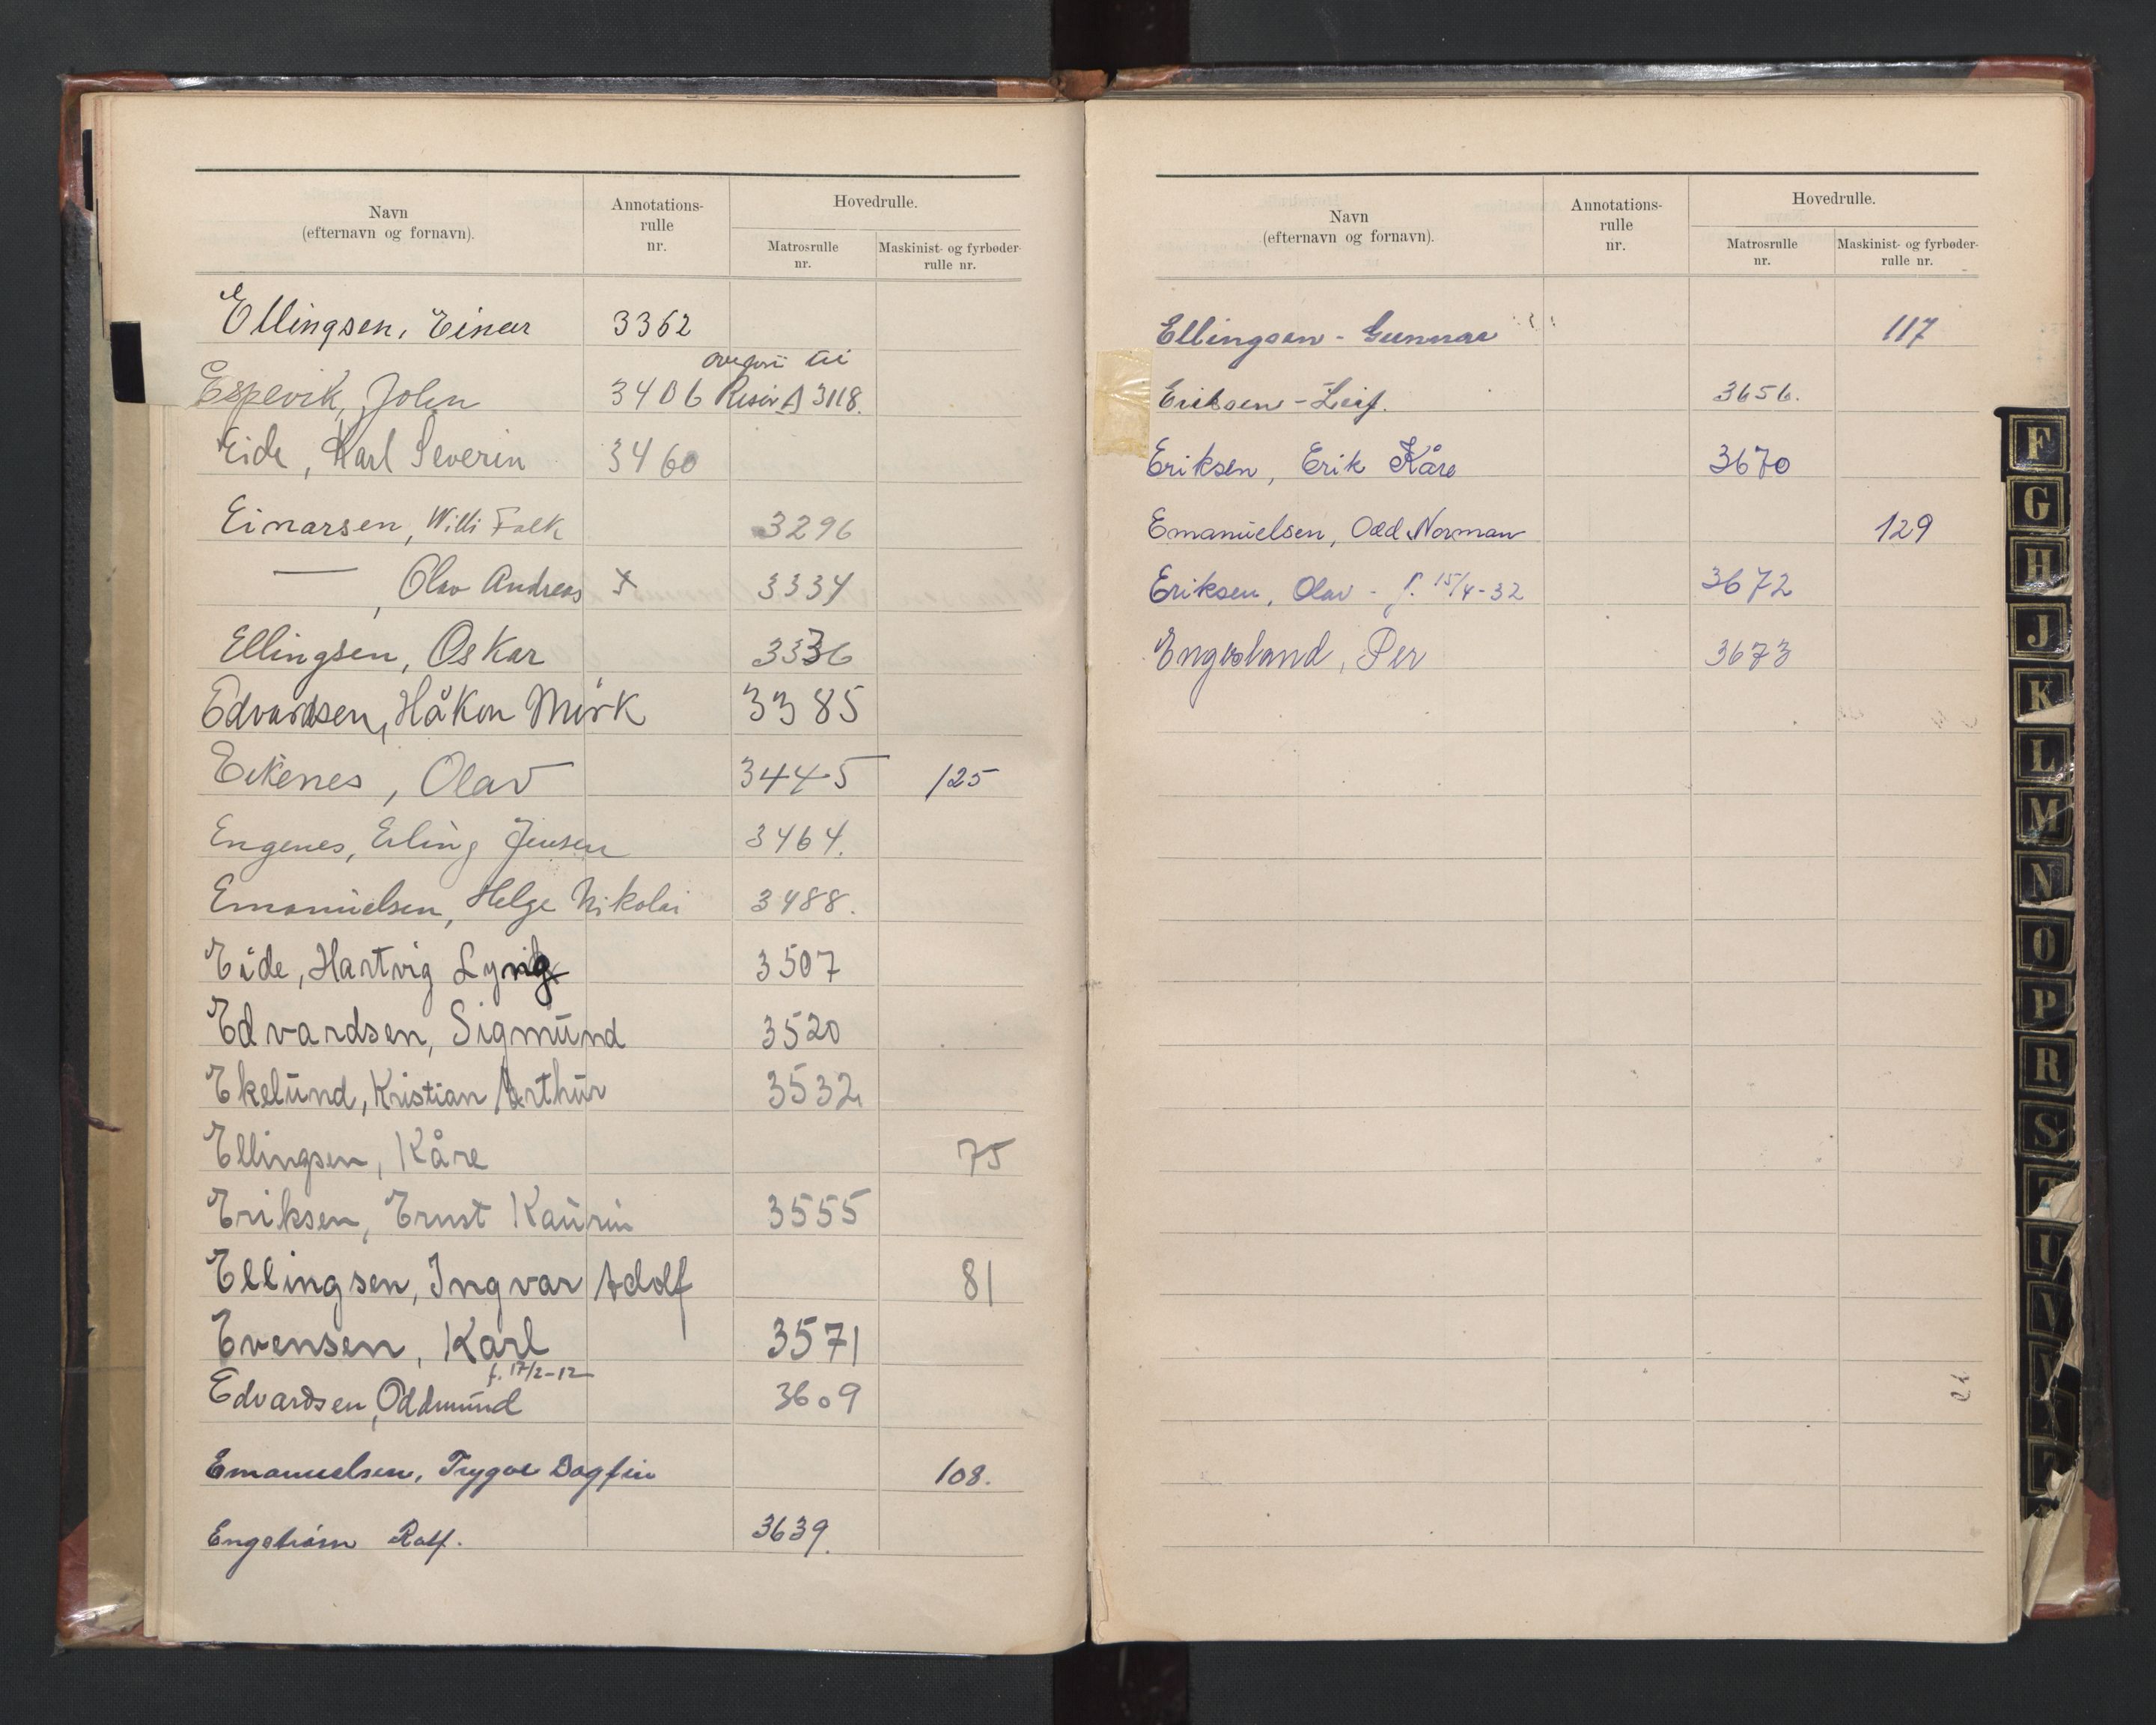 Navn
(efternavn og fornavn).
Annotations-
rulle
nr.
Hovedrulle.
Matrosrulle
nr.
Maskinist- og fyrbøder-
rulle nr.
Ellingsen, Einar 3362
overført til
Espevik, John 3406 Reserv A 3118.
Eide, Karl Severin 3460
Einarsen, Willi Falk 3296
— , Olav Andreas x 3334
Ellingsen, Oskar 3336
Edvardsen, Håkon Mörk 3385
Eikenes, Olav 3445 125
Engenes, Erling Jensen 3464.
Emanuielsen, Helge Nikolai 3488.
Eide, Hartvig Lyng 3507
Edvardsen, Sigmund 3520
Ekelund, Kristian Arthur 3532
Ellingsen, Kåre 75
Eriksen, Ernst Kaurin 3555
Ellingsen, Ingvar Adolf 81
Evensen, Karl 3571
f. 17/2-12
Edvardsen, Oddmund 3609
Emanuelsen, Trygve Dagfin 108.
Engström Rolf. 3639.
Navn
(efternavn og fornavn).
Annotations-
rulle
nr.
Hovedrulle.
Matrosrulle
nr.
Maskinist- og fyrbøder-
rulle nr.
Ellingsen - Gunnar 117
Eriksen - Leif. 3656.
Eriksen, Erik Kåre 3670
Emanuielsen, Odd Norman 129
Eriksen, Olav - f. 15/4-32 3672
Engesland, Per 3673
F
G
H
J
K
L
M
N
O
P
R
S
T
U
V